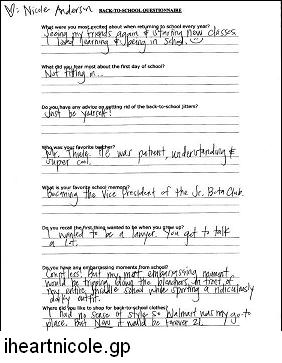 ♡: Nicole Anderson BACK-TO-SCHOOL QUESTIONNAIRE
What were you most excited about when returning to school every year?
Seeing my friends again & starting new classes.
I loved learning & being in school. ☺
What did you fear most about the first day of school?
Not fitting in...
Do you have any advice on getting rid of the back-to-school jitters?
Just be yourself!
Who was your favorite teacher?
Mr. He was patient, understanding &
super cool.
What is your favorite school memory?
Becoming the Vice President of the Jr. Beta Club.
Do you recall the first thing wanted to be when you grew up?
I wanted to be a lawyer. You get to talk
a lot.
Do you have any embarrassing moments from school?
Countless! But my most embarrassing moment
would be tripping down the bleachers in front of
my entire middle school while sporting a ridiculously
dorky outfit.
Where did you like to shop for back-to-school clothes?
I had no sense of style so Walmart was my go-to
place, but now it would be Forever 21.
iheartnicole.gp